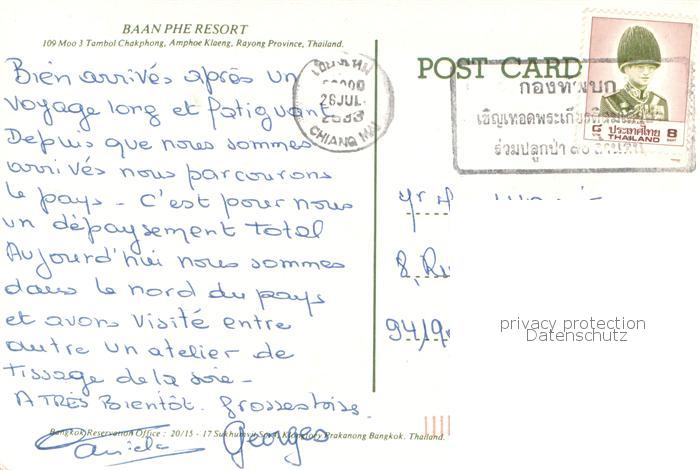 BAAN PHE RESORT
109 Moo 3 Tambol Chakphong, Amphoe Klaeng, Rayong Province, Thailand.
POST CARD
Bien arrivés après un
voyage long et fatiguant
Depuis que nous sommes
arrivés nous parcourons
le pays - C'est pour nous
un dépaysement total
Aujourd'hui nous sommes
dans le nord du pays
et avons visité entre
autre un atelier de
tissage de la soie -
A TRÈS Bientôt. grosses bises.
Georges
Bangkok Reservation Office : 20/15 - 17 Prakanong Bangkok. Thailand.
26 JUL
CHIANG MAI
กองทัพบก
ร่วมปลูกป่า
ประเทศไทย 8
THAILAND
8,
94/9
privacy protection
Datenschutz